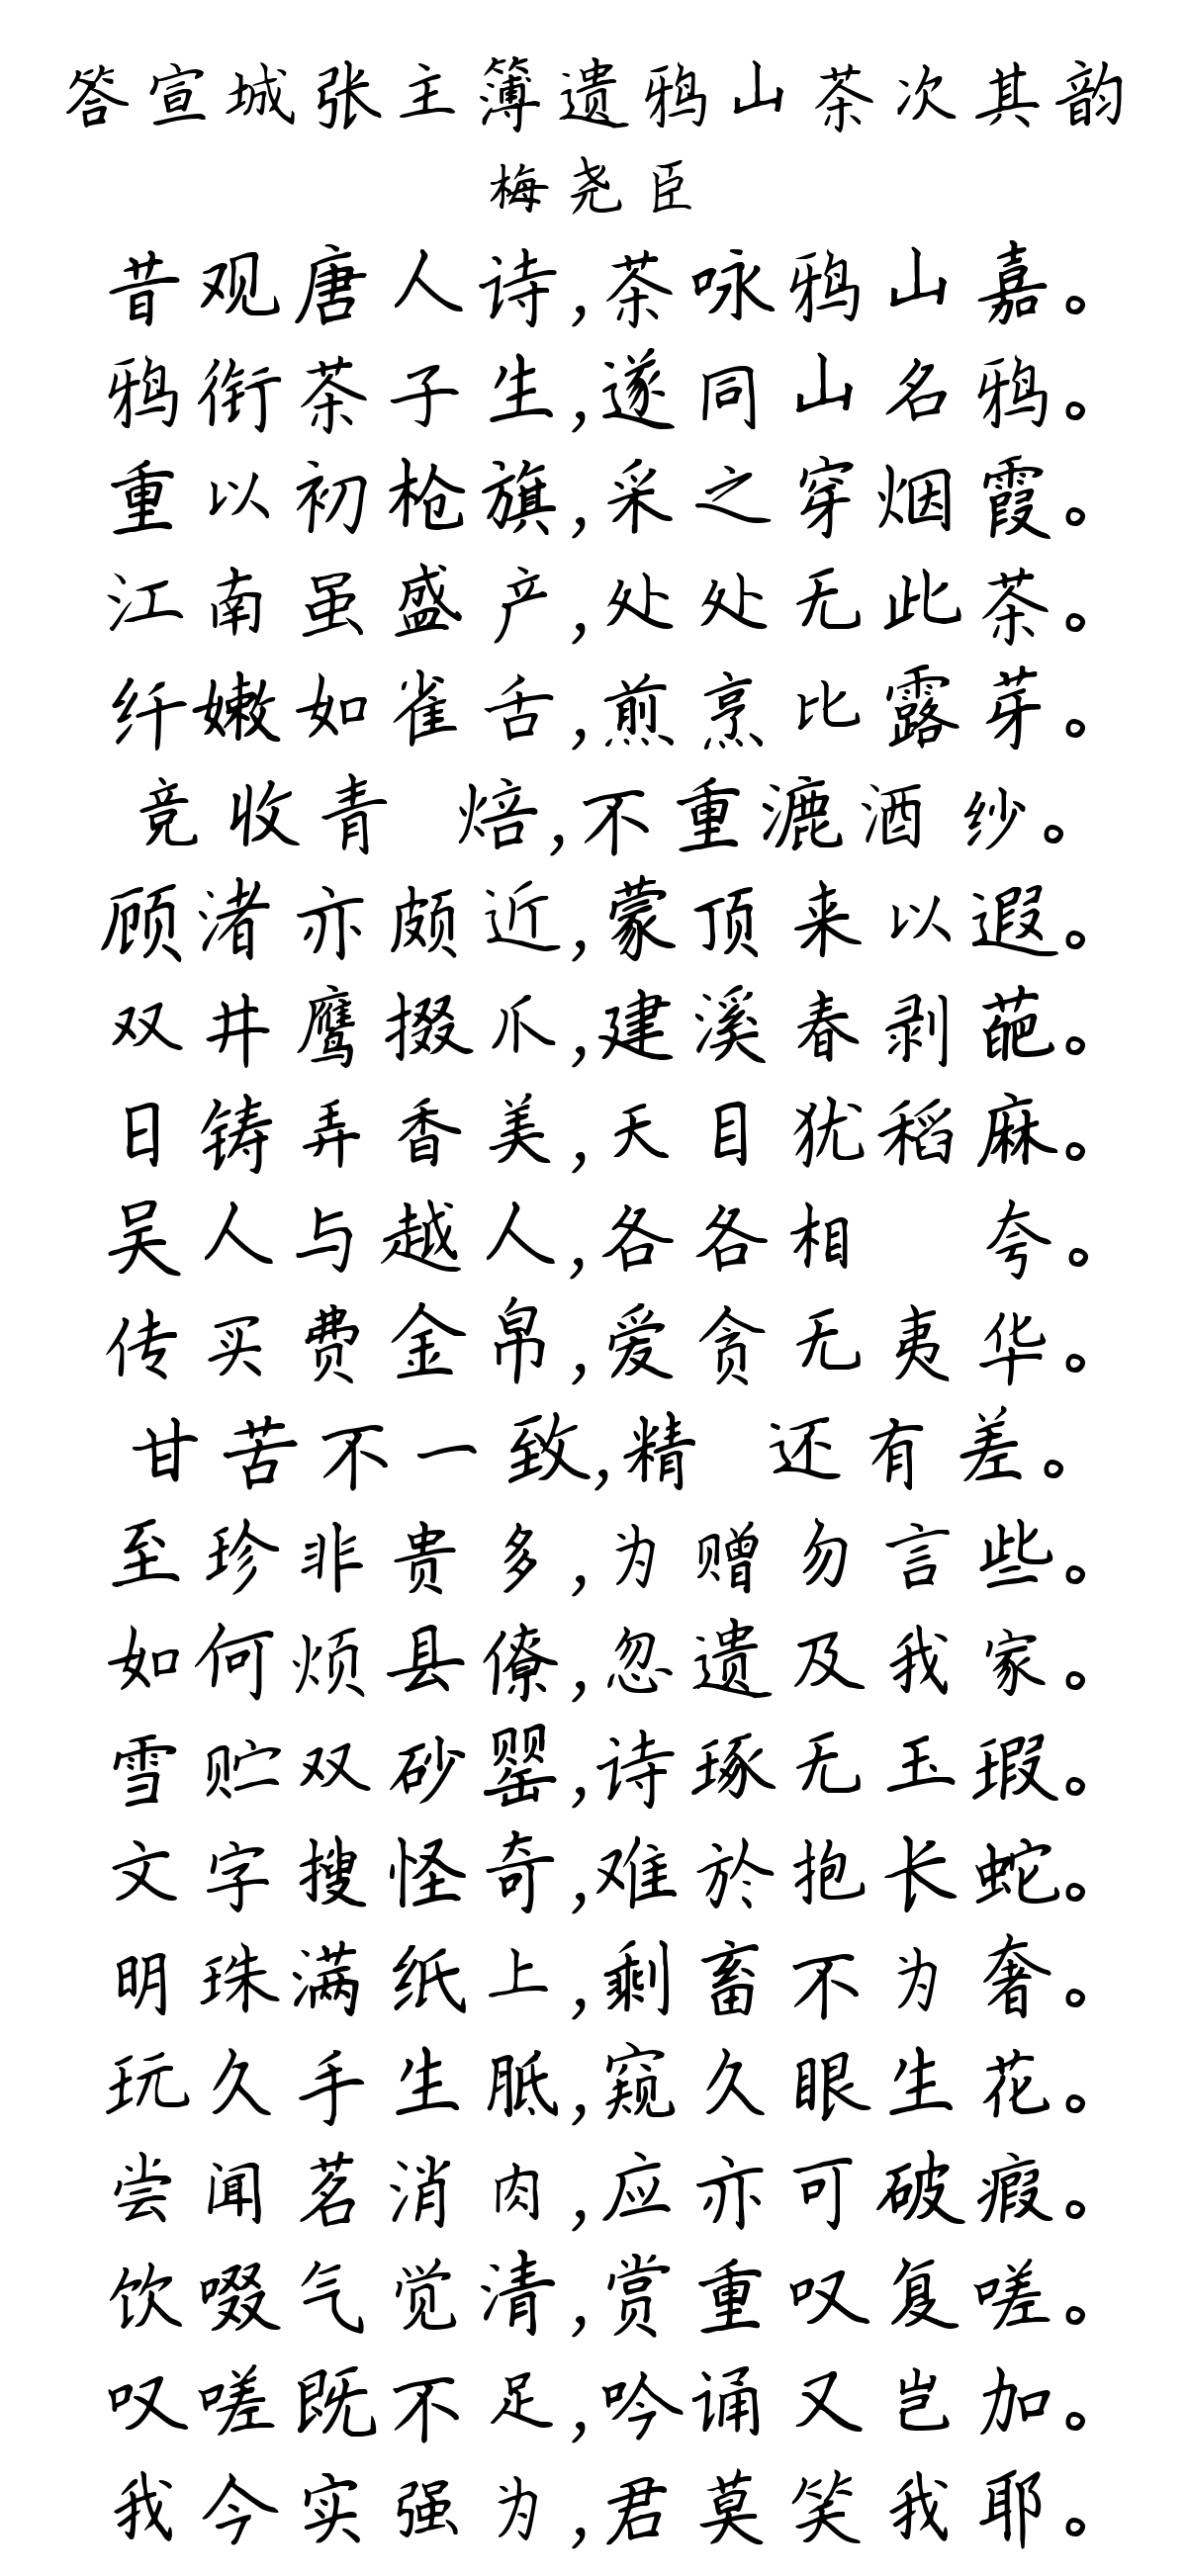 答宣城张主簿遗鸦山茶次其韵
梅尧臣
昔观唐人诗,茶咏鸦山嘉。
鸦衔茶子生,遂同山名鸦。
重以初枪旗,采之穿烟霞。
江南虽盛产,处处无此茶。
纤嫩如雀舌,煎烹比露芽。
竞收青 焙,不重漉酒 纱。
顾渚亦颇近,蒙顶来以遐。
双井鹰掇爪,建溪春剥葩。
日铸弄香美,天目犹稻麻。
吴人与越人,各各相 夸。
传买费金帛,爱贪无夷华。
甘苦不一致,精 还有差。
至珍非贵多,为赠勿言些。
如何烦县僚,忽遗及我家。
雪贮双砂罂,诗琢无玉瑕。
文字搜怪奇,难於抱长蛇。
明珠满纸上,剩畜不为奢。
玩久手生胝,窥久眼生花。
尝闻茗消肉,应亦可破瘕。
饮啜气觉清,赏重叹复嗟。
叹嗟既不足,吟诵又岂加。
我今实强为,君莫笑我耶。